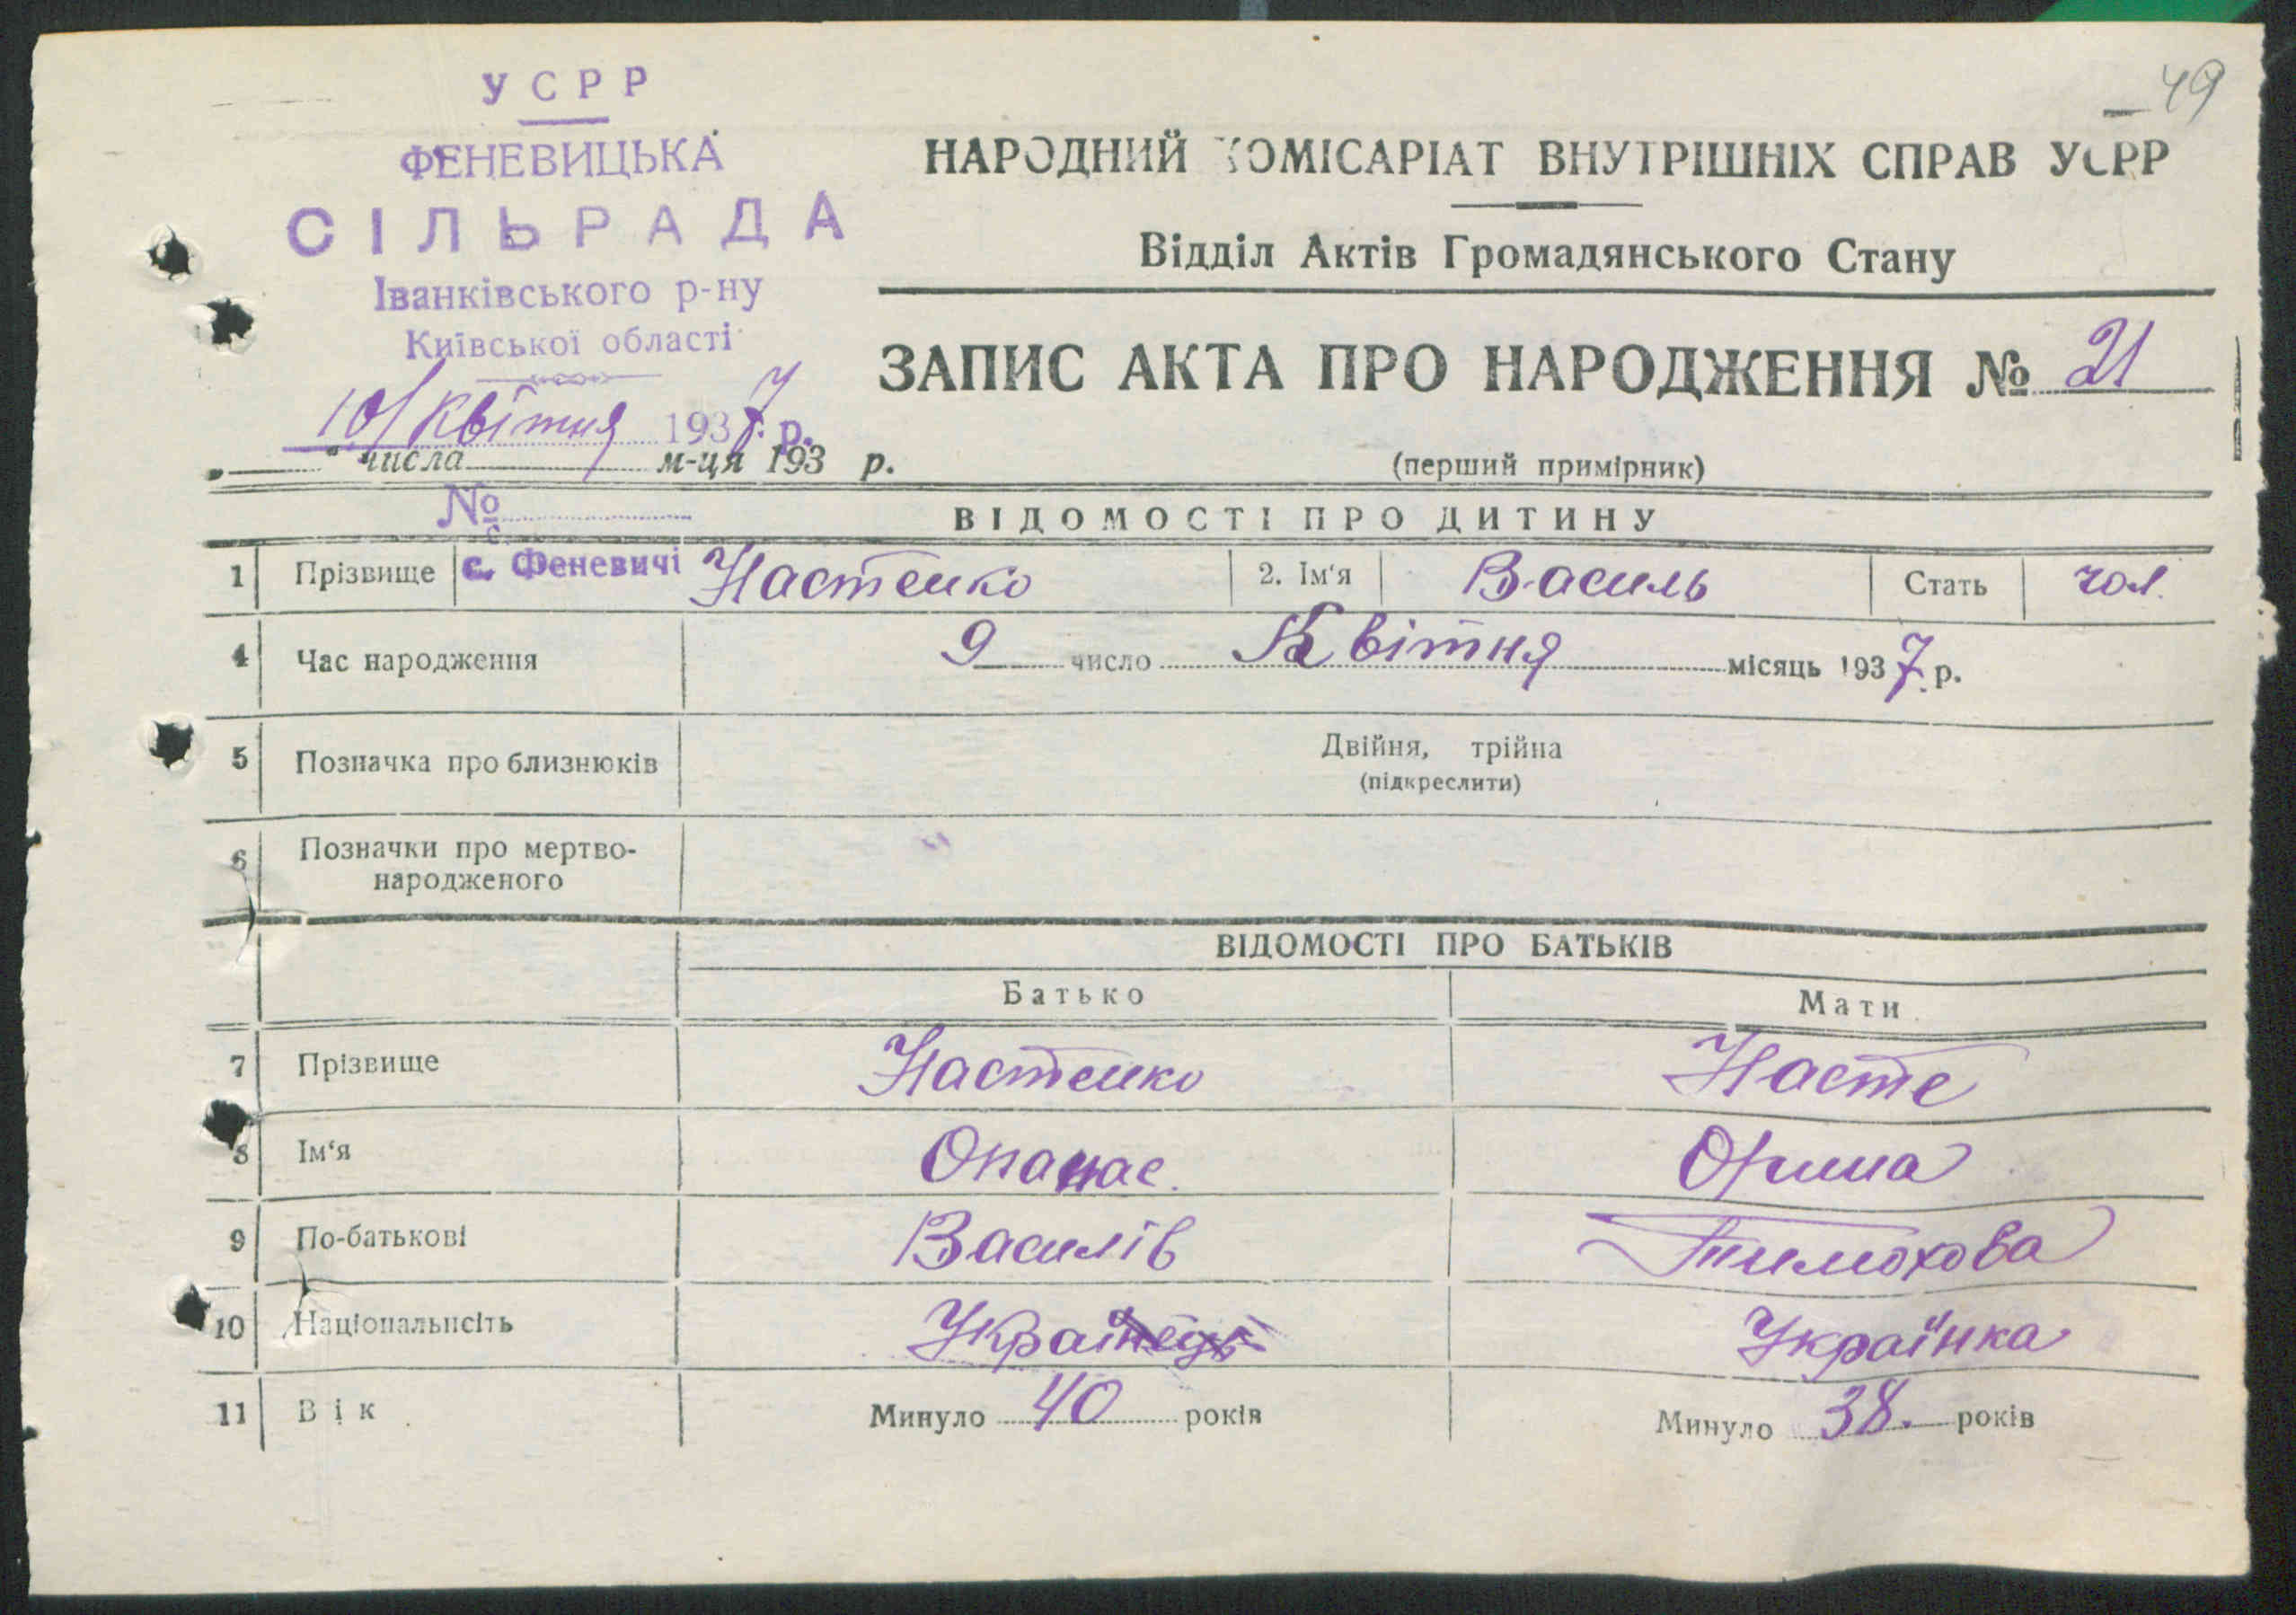 49
УСРР
ФЕНЕВИЦЬКА
СІЛЬРАДА
Іванківського р-ну
Київської області
10/Квітня 1937 р.
НАРОДНИЙ КОМІСАРІАТ ВНУТРІШНІХ СПРАВ УСРР
Відділ Актів Громадянського Стану
ЗАПИС АКТА ПРО НАРОДЖЕННЯ № 21
„ “ числа м-ця 193 р.
(перший примірник)
№
с. Феневичі
ВІДОМОСТІ ПРО ДИТИНУ
1 Прізвище Настенко 2. Ім'я Василь Стать чол.
4 Час народження 9 число Квітня місяць 1937 р.
5 Позначка про близнюків Двійня, трійна
(підкреслити)
6 Позначки про мертво-
народженого
ВІДОМОСТІ ПРО БАТЬКІВ
Батько Мати
7 Прізвище Настенко Насте
8 Ім'я Опанас. Орина
9 По-батькові Василів Тимохова
10 Національнсіть Українець Українка
11 Вік Минуло 40 років Минуло 38. років